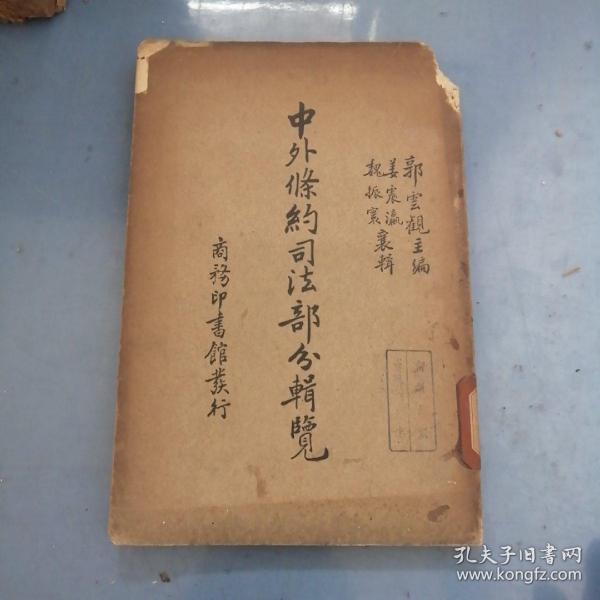 郭雲觀主編
姜震瀛
魏振寰
襄輯
中外條約司法部分輯覽
商務印書館發行
孔夫子旧书网
www.kongfz.com